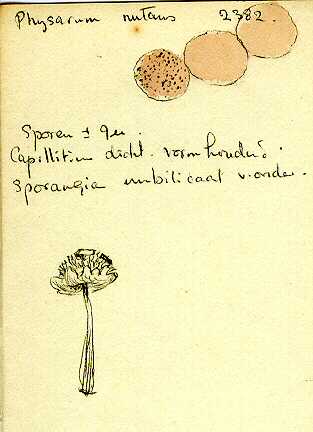 Physarum nutans 2382.
Sporen ± 9μ.
Capillitium dicht. vormhoudend.
Sporangia umbilicaat v. onder.